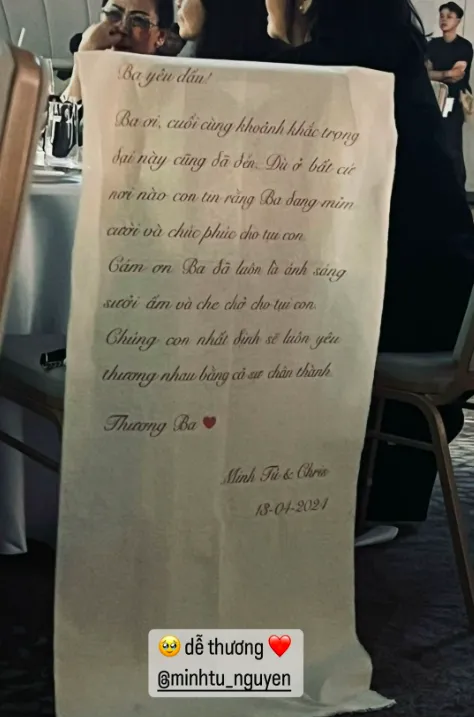 Ba yêu dấu!
Ba ơi, cuối cùng khoảnh khắc trọng
đại này cũng đã đến. Dù ở bất cứ
nơi nào con tin rằng Ba đang mỉm
cười và chúc phúc cho tụi con.
Cảm ơn Ba đã luôn là ánh sáng
sưởi ấm và che chở cho tụi con.
Chúng con nhất định sẽ luôn yêu
thương nhau bằng cả sự chân thành.
Thương Ba ❤
Minh Tú & Chris
13-04-2024
🥹 dễ thương ❤️
@minhtu_nguyen